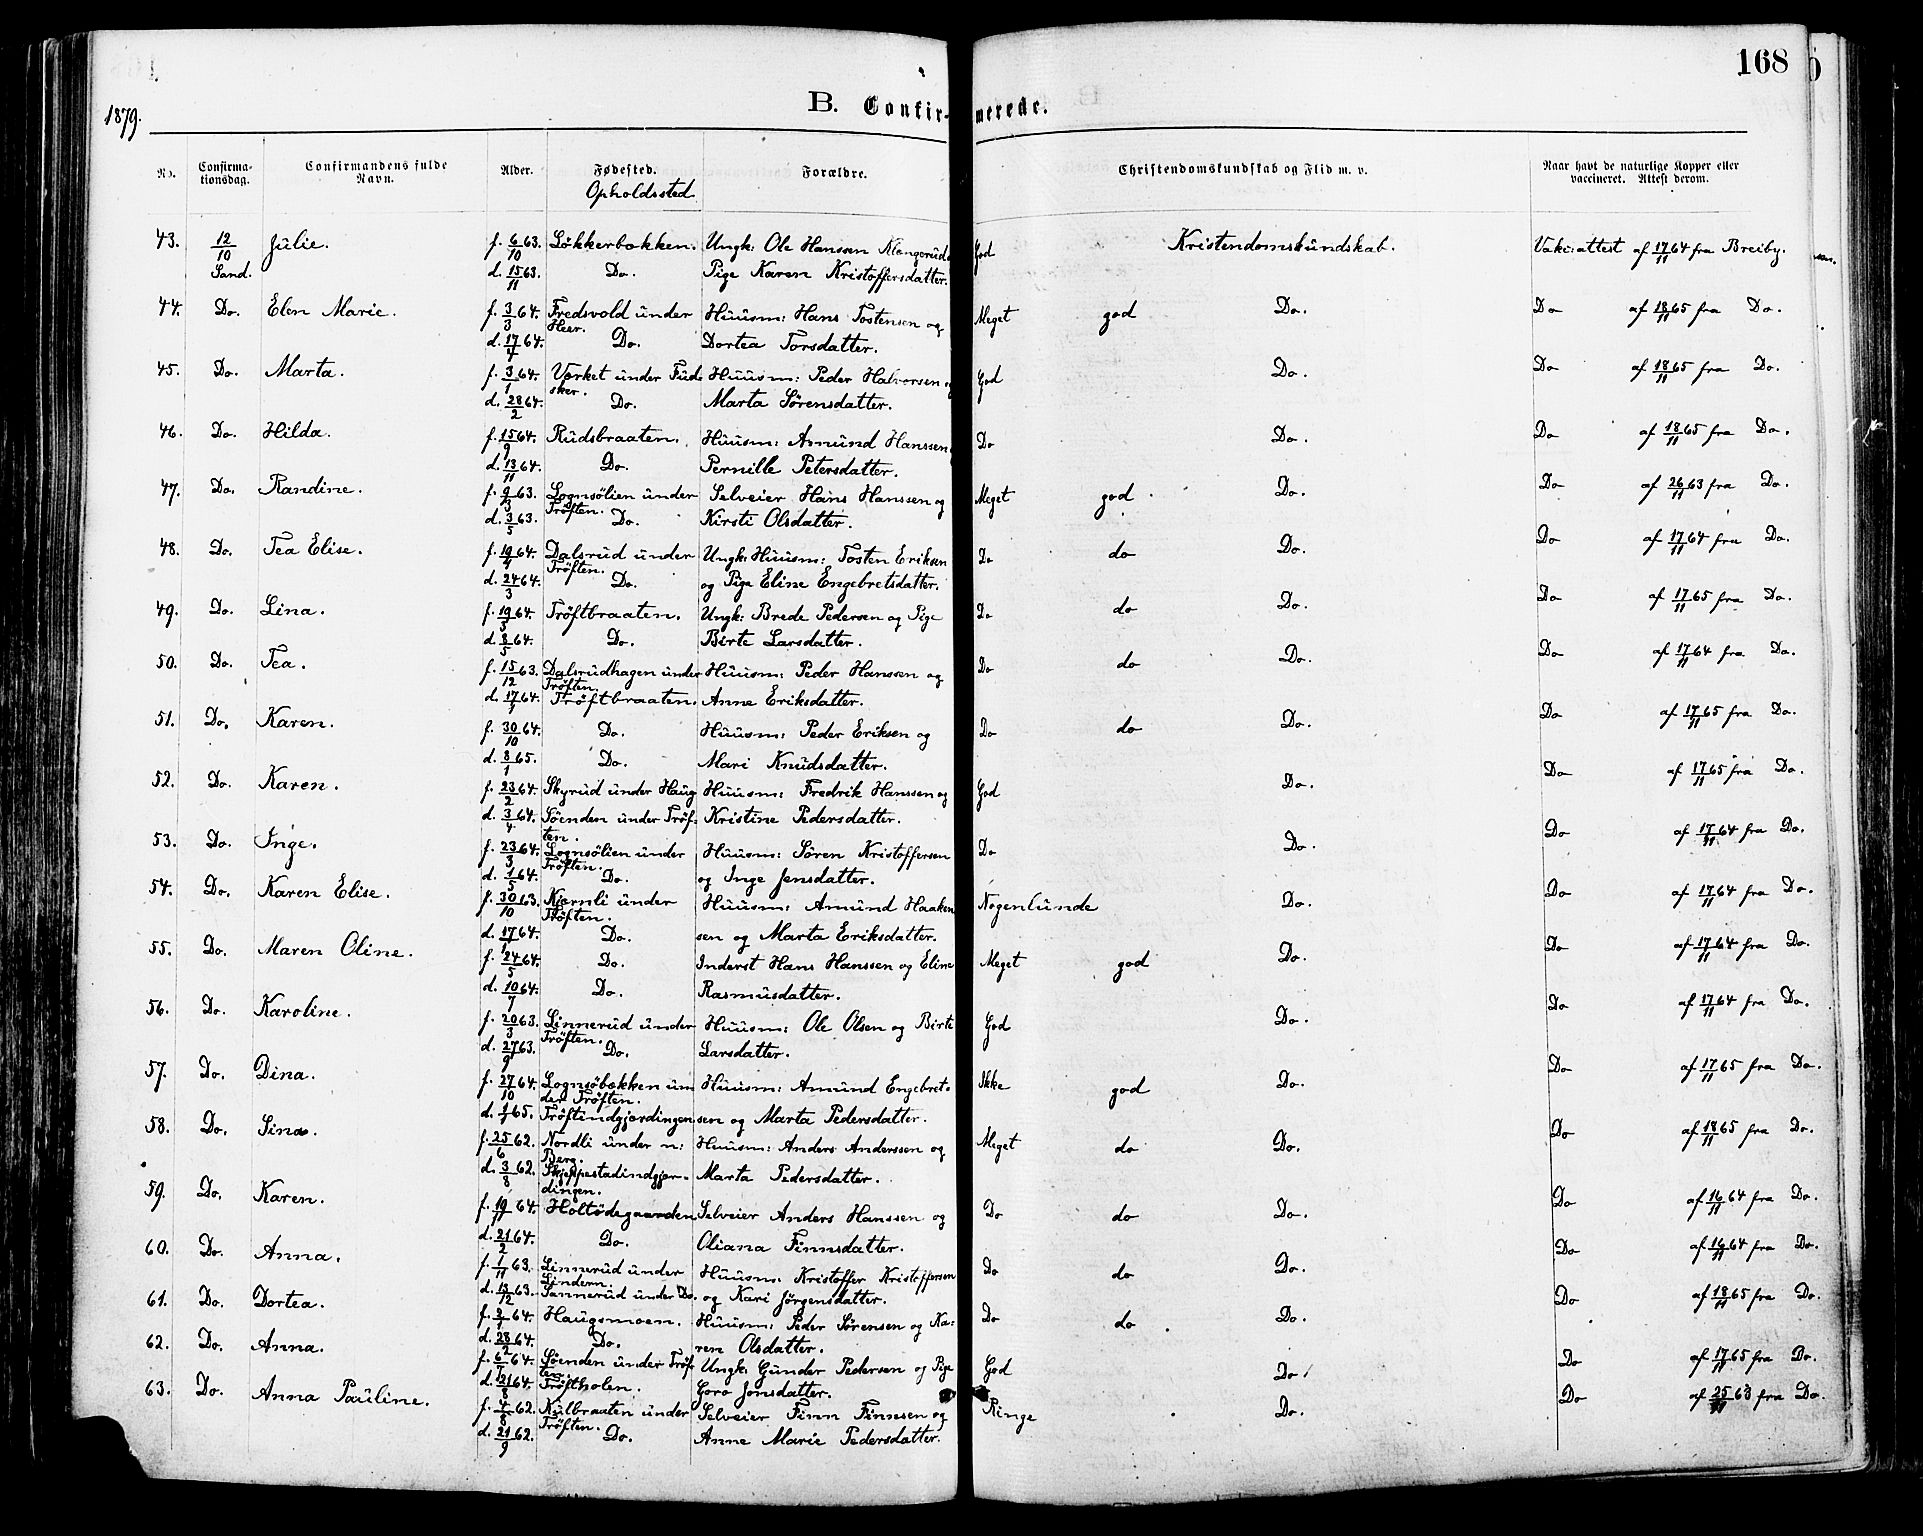 168
1879.
B. Confirmerede.
No. Confirmationsdag. Confirmandens fulde Navn. Alder. Fødested. Forældre. Christendomskundskab og Flid m. v. Naar havt de naturlige Kopper eller vaccineret. Attest derom.
Opholdssted
43. 12/10 Julie. f. 6/10 63. Løkkerbakken. Ungk: Ole Hanssen Klangerud God Kristendomskundskab. Vakc:attest af 17/11 64 fra Breiby.
Sand. d. 15/11 63. Do. Pige Karen Kristoffersdatter.
44. Do. Elen Marie. f. 3/3 64. Fredsvold under Heer. Huusm: Hans Tostensen og Meget god Do. Do af 18/11 65 fra Do.
d. 17/4 64. Do. Dortea Torsdatter.
45. Do. Marta. f. 3/1 64. Værket under Fudesker. Huusm: Peder Halvorsen og God Do. Do af 18/11 65 fra Do.
d. 28/2 64. Do. Marta Sørensdatter.
46. Do. Hilda. f. 15/9 64. Rudsbraaten. Huusm: Amund Hanssen Do Do. Do af 18/11 65 fra Do.
d. 13/11 64. Do. Pernille Petersdatter.
47. Do. Randine. f. 9/3 63. Lognsølien under Trøften. Selveier Hans Hanssen og Meget god Do. Do af 26/11 63 fra Do.
d. 3/5 63. Do. Kirsti Olsdatter.
48. Do. Tea Elise. f. 19/1 64. Dalsrud under Trøften. Ungk: Huusm: Tosten Eriksen Do do Do. Do af 17/11 64 fra Do.
d. 24/3 64. Do. og Pige Eline Engebretsdatter.
49. Do. Lina. f. 19/3 64. Trøftbraaten. Ungk: Brede Pedersen og Pige Do do Do. Do af 17/11 65 fra Do.
d. 8/5 64. Do. Birte Larsdatter.
50. Do. Tea. f. 15/12 63. Dalsrudhagen under Trøften. Huusm: Peder Hanssen og Do do Do. Do af 17/11 64 fra Do.
d. 17/1 64. Trøftbraaten. Anne Eriksdatter.
51. Do. Karen. f. 30/10 64. Do. Huusm: Peder Eriksen og Do do Do. Do af 17/11 65 fra Do.
d. 8/1 65. Do. Mari Knudsdatter.
52. Do. Karen. f. 23/2 64. Skyrud under Haug Huusm: Fredrik Hanssen og God Do. Do af 17/11 65 fra Do.
d. 3/4 64. Søenden under Trøften. Kristine Pedersdatter.
53. Do. Inge. f. 23/3 64. Lognsølien under Trøften. Huusm: Søren Kristoffersen Do Do. Do af 17/11 64 fra Do.
d. 1/5 64. Do. og Inge Jensdatter.
54. Do. Karen Elise. f. 30/10 63. Kjernli under Trøften. Huusm: Amund Haaken Nogenlunde Do. Do af 17/11 64 fra Do.
d. 17/1 64. Do. sen og Marta Eriksdatter.
55. Do. Maren Oline. f. 24/5 64. Do. Inderst Hans Hanssen og Eline Meget god Do. Do af 17/11 64 fra Do.
d. 10/7 64. Do. Rasmusdatter.
56. Do. Karoline. f. 20/3 63. Linnerud under Trøften. Huusm: Ole Olsen og Birte God Do. Do af 17/11 64 fra Do.
d. 27/9 63. Do. Larsdatter.
57. Do. Dina. f. 27/10 64. Lognsøbakken under Trøften. Huusm: Amund Engebret- Ikke god Do. Do af 17/11 65 fra Do.
d. 1/1 65. Trøftindgjærdingen sen og Marta Pedersdatter.
58. Do. Sina. f. 25/6 62. Nordli under n: Berg. Huusm: Anders Anderssen og Meget do Do. Do af 18/11 65 fra Do.
d. 3/8 62. Skjeppestadindgjærdingen. Marta Pedersdatter.
59. Do. Karen. f. 19/11 64. Holtødegaarden Selveier Anders Hanssen og Do do Do. Do af 16/11 64 fra Do.
d. 21/2 64. Do. Oliana Finnsdatter.
60. Do. Anna. f. 1/11 63. Linnerud under Lindern. Huusm: Kristoffer Kristoffersen Do do Do. Do af 16/11 64 fra Do.
d. 13/12 63. Sannerud under Do. og Kari Jørgensdatter.
61. Do. Dortea. f. 2/1 64. Haugsmoen. Huusm: Peder Sørensen og Ka- Do do Do. Do af 18/11 65 fra Do.
d. 28/2 64. Do. ren Olsdatter.
62. Do. Anna. f. 6/7 64. Søenden under Trøften. Ungk: Gunder Pedersen og Pige God Do. Do af 17/11 65 fra Do.
d. 21/8 64. Trøftholen. Goro Jonsdatter.
63. Do. Anna Pauline. f. 4/8 62. Nulbraaten under Trøften. Selveier Finn Finnsen og Ringe Do. Do af 25/11 63 fra Do.
d. 21/9 62. Do. Anne Marie Pedersdatter.